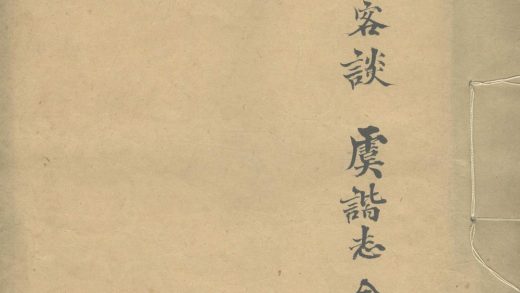 客談 虞諧志